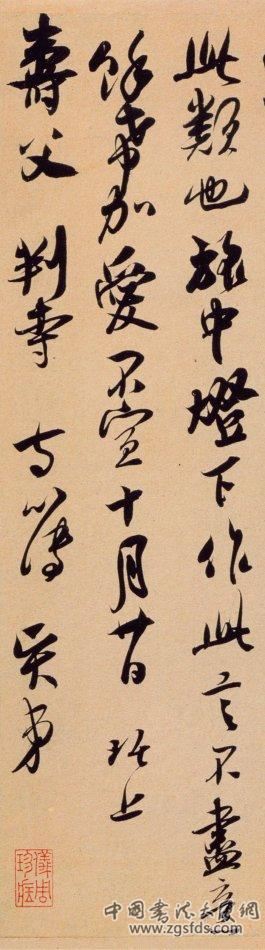 此類也旅中燈下作此言不盡意
餘希加愛不宣十月廿日 琚上
壽父 判寺
儀周珍藏
中國書法大師網
www.zgsfds.com